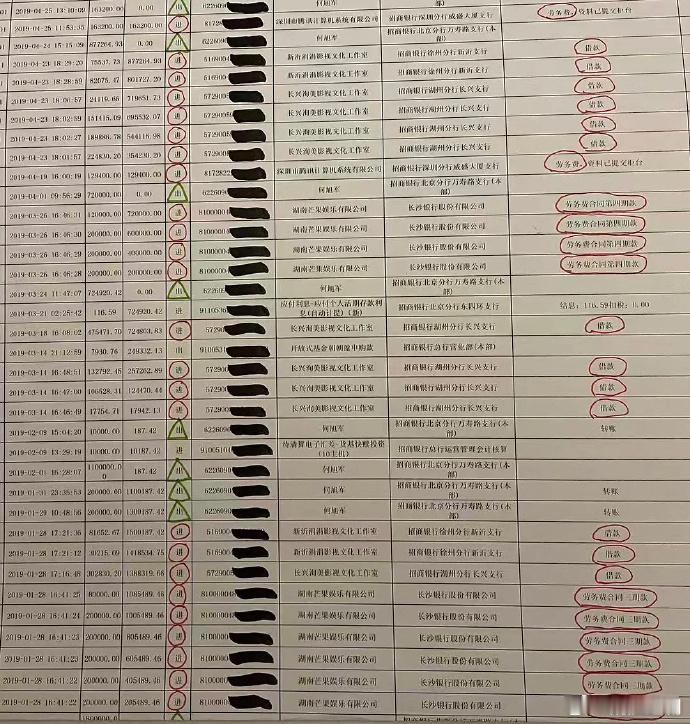 13:10:09 163200.00 0.00 出 6226090 何旭军 招商银行北京分行万寿路支行(本部)
2019-04-25 11:53:35 163200.00 163200.00 进 8172 深圳市腾讯计算机系统有限公司 招商银行深圳分行威盛大厦支行 劳务费,资料已提交柜台
2019-04-24 15:15:09 877264.93 0.00 出 6226090 何旭军 招商银行北京分行万寿路支行(本部)
2019-04-23 18:29:20 877264.93 进 新沂 影视文化工作室 招商银行徐州分行新沂支行 借款
2019-04-23 18:28:59 82075.47 801727.20 进 新沂 影视文化工作室 招商银行徐州分行新沂支行 借款
2019-04-23 进 5729000 长兴洵美影视文化工作室 招商银行湖州分行长兴支行 借款
2019-04-23 18:02:59 进 572900 长兴洵美影视文化工作室 招商银行湖州分行长兴支行 借款
2019-04-23 18:02:27 544116.98 进 572900 长兴洵美影视文化工作室 招商银行湖州分行长兴支行 借款
2019-04-23 18:01:57 224830.20 354230.20 进 572900 长兴洵美影视文化工作室 招商银行湖州分行长兴支行 借款
2019-04-19 16:00:19 129400.00 129400.00 进 8172822 深圳市腾讯计算机系统有限公司 招商银行深圳分行威盛大厦支行 劳务费,资料已提交柜台
2019-04-01 09:56:29 720000.00 0.00 出 6226090 何旭军 招商银行北京分行万寿路支行(本部)
2019-03-26 16:46:31 120000.00 720000.00 进 8100000 湖南芒果娱乐有限公司 长沙银行股份有限公司 劳务费合同第四期款
2019-03-26 16:46:30 200000.00 600000.00 进 8100000 湖南芒果娱乐有限公司 长沙银行股份有限公司 劳务费合同第四期款
2019-03-26 16:46:29 200000.00 400000.00 进 8100000 湖南芒果娱乐有限公司 长沙银行股份有限公司 劳务费合同第四期款
2019-03-26 16:46:28 200000.00 200000.00 进 8100000 湖南芒果娱乐有限公司 长沙银行股份有限公司 劳务费合同第四期款
2019-03-24 11:47:07 724920.42 0.00 出 622609 何旭军 招商银行北京分行万寿路支行(本部)
2019-03-21 02:25:42 116.59 724920.42 进 9110536 应付利息-应付个人活期存款利息(自动计提)(新) 招商银行北京分行东四环支行 结息:116.59扣税:0.00
2019-03-18 16:08:02 475471.70 724803.83 进 572900 长兴洵美影视文化工作室 招商银行湖州分行长兴支行 借款
2019-03-14 21:12:59 7930.76 249332.13 出 9100531 开放式基金 申购款 招商银行总行营业部(本部)
2019-03-14 16:48:51 132792.45 257262.89 进 572900 长兴洵美影视文化工作室 招商银行湖州分行长兴支行 借款
2019-03-14 16:47:00 106528.31 124470.44 进 572900 长兴洵美影视文化工作室 招商银行湖州分行长兴支行 借款
2019-03-14 16:46:49 17754.71 17942.13 进 572900 长兴洵美影视文化工作室 招商银行湖州分行长兴支行 借款
2019-02-09 15:04:20 10000.00 187.42 出 6226090 何旭军 招商银行北京分行万寿路支行(本部) 转账
2019-02-09 13:29:19 10000.00 10187.42 进 91005101 招商银行总行运营管理部会计核算
2019-02-01 16:28:07 1100000.00 187.42 出 6226090 何旭军 招商银行北京分行万寿路支行(本部)
2019-01-31 23:35:53 200000.00 1100187.42 出 6226090 何旭军 招商银行北京分行万寿路支行(本部) 转账
2019-01-29 10:48:56 200000.00 1300187.42 出 6226090 何旭军 招商银行北京分行万寿路支行(本部) 转账
2019-01-28 17:21:36 81652.67 1500187.42 进 516900 新沂 影视文化工作室 招商银行徐州分行新沂支行 借款
2019-01-28 17:21:12 30215.09 1418534.75 进 516900 新沂 影视文化工作室 招商银行徐州分行新沂支行 借款
2019-01-28 17:16:48 302830.20 1388319.66 进 5729000 长兴洵美影视文化工作室 招商银行湖州分行长兴支行 借款
2019-01-28 16:41:25 80000.00 1085489.46 进 810000004 湖南芒果娱乐有限公司 长沙银行股份有限公司 劳务费合同三期款
2019-01-28 16:41:24 200000.00 1005489.46 进 81000000 湖南芒果娱乐有限公司 长沙银行股份有限公司 劳务费合同三期款
2019-01-28 16:41:23 200000.00 805489.46 进 8100000 湖南芒果娱乐有限公司 长沙银行股份有限公司 劳务费合同三期款
2019-01-28 16:41:23 200000.00 605489.46 进 8100000 湖南芒果娱乐有限公司 长沙银行股份有限公司 劳务费合同三期款
2019-01-28 16:41:22 200000.00 405489.46 进 8100000 湖南芒果娱乐有限公司 长沙银行股份有限公司 劳务费合同三期款
2019-01-28 16:41:22 200000.00 205489.46 进 8100000 湖南芒果娱乐有限公司 长沙银行股份有限公司